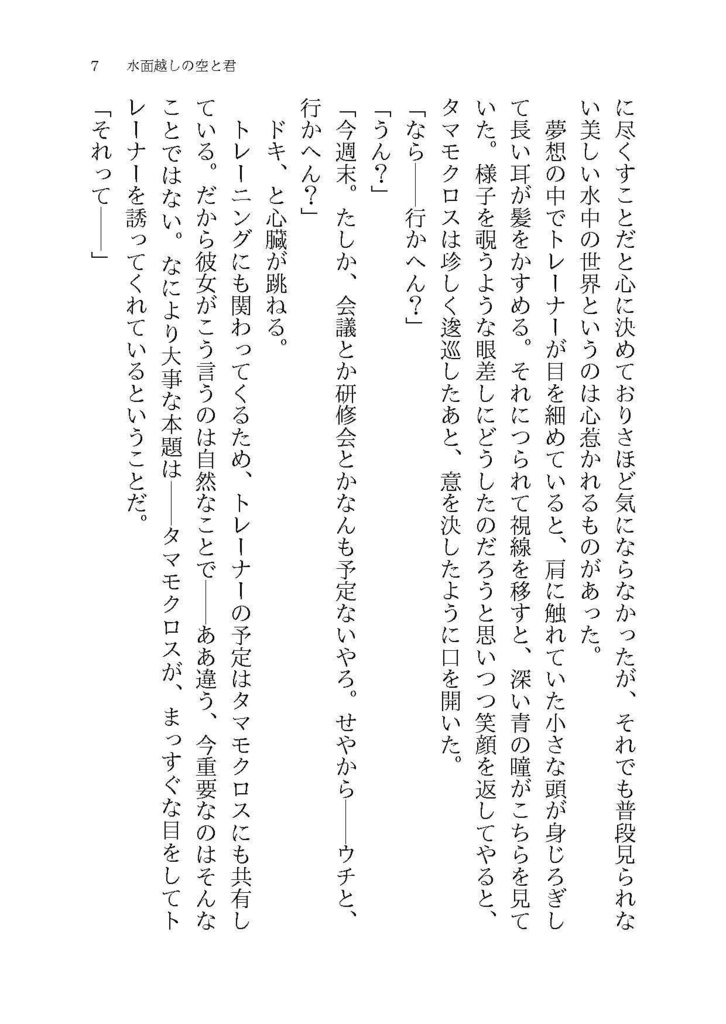 7　水面越しの空と君
に尽くすことだと心に決めておりさほど気にならなかったが、それでも普段見られな
い美しい水中の世界というのは心惹かれるものがあった。
　夢想の中でトレーナーが目を細めていると、肩に触れていた小さな頭が身じろぎし
て長い耳が髪をかすめる。それにつられて視線を移すと、深い青の瞳がこちらを見て
いた。様子を覗うような眼差しにどうしたのだろうと思いつつ笑顔を返してやると、
タマモクロスは珍しく逡巡したあと、意を決したように口を開いた。
「なら――行かへん？」
「うん？」
「今週末。たしか、会議とか研修会とかなんも予定ないやろ。せやから――ウチと、
行かへん？」
　ドキ、と心臓が跳ねる。
　トレーニングにも関わってくるため、トレーナーの予定はタマモクロスにも共有し
ている。だから彼女がこう言うのは自然なことで――ああ違う、今重要なのはそんな
ことではない。なにより大事な本題は――タマモクロスが、まっすぐな目をしてト
レーナーを誘ってくれているということだ。
「それって――」